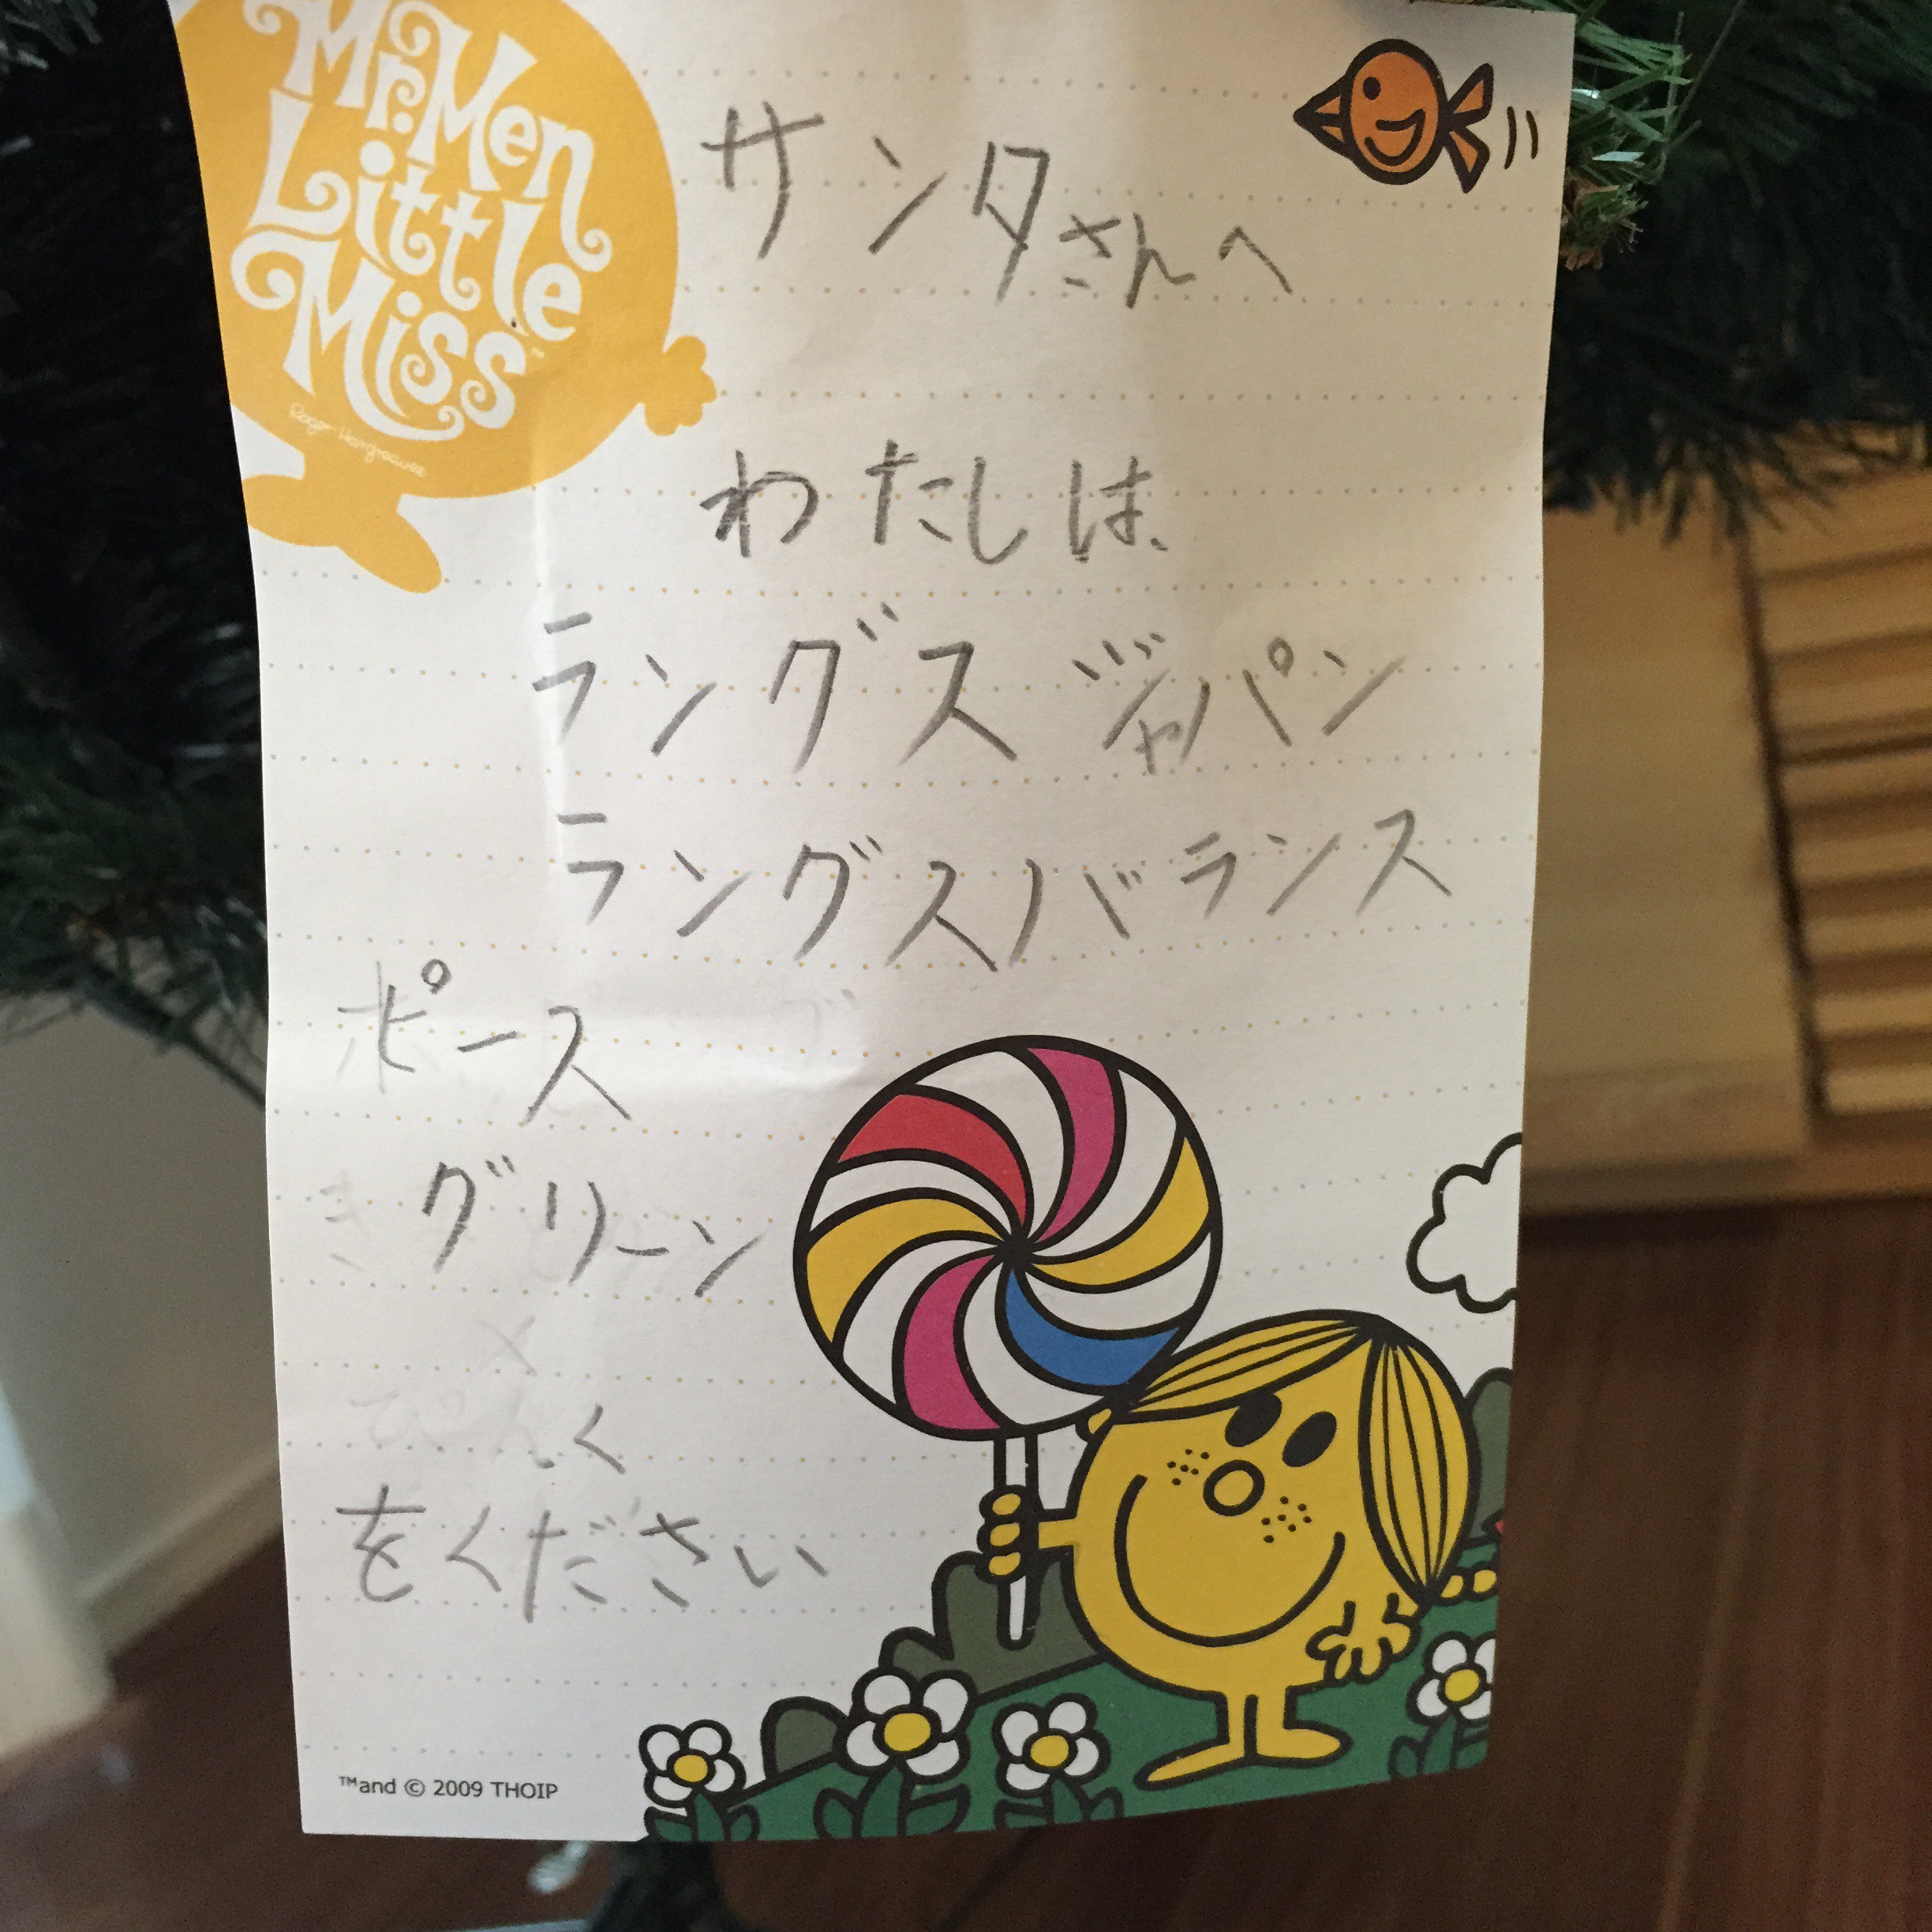 Mr. Men
Little
Miss
Roger Hargreaves
サンタさんへ
わたしは、
ラングスジャパン
ラングスバランス
ピース
グリーン
をください
™and © 2009 THOIP